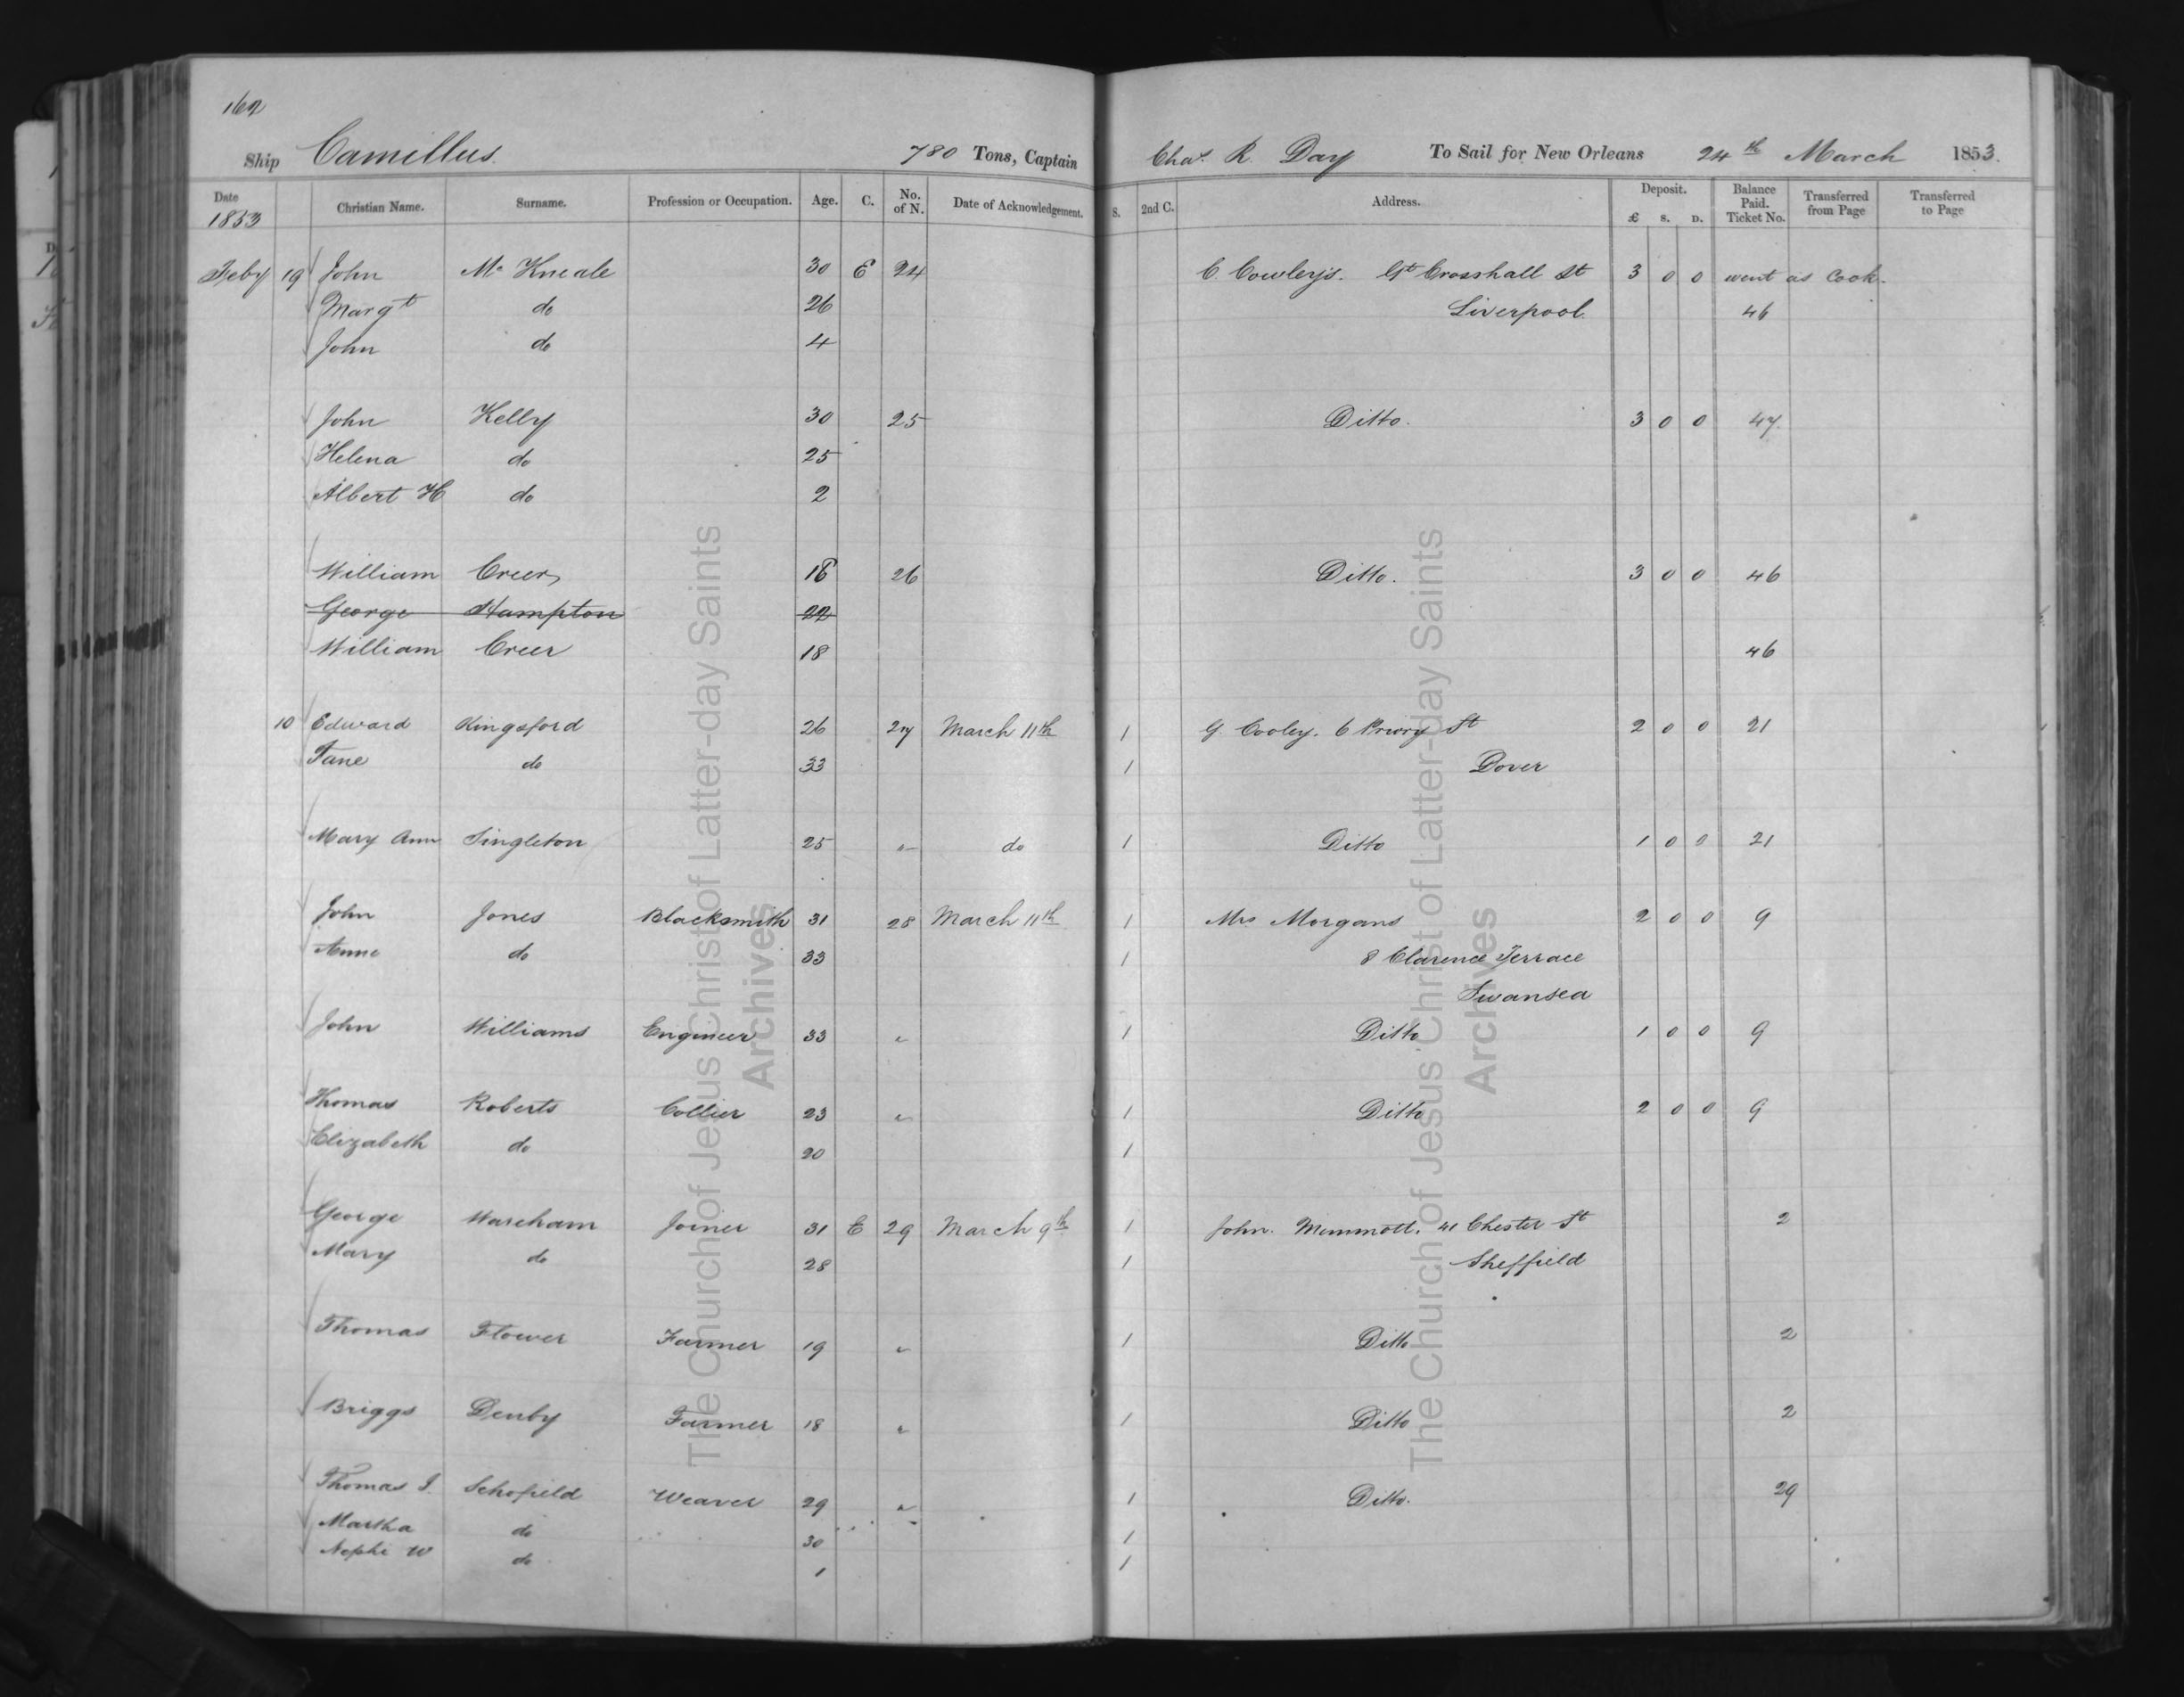 162
Ship Camillus. 780 Tons, Captain Chas. R. Day To Sail for New Orleans 24th March 1853.
Date 1853 Christian Name. Surname. Profession or Occupation. Age. C. No. of N. Date of Acknowledgement. S. 2nd C. Address. Deposit. £ S. D. Balance Paid. Ticket No. Transferred from Page Transferred to Page
Feby 19 John Mc Kneale 30 E 24 C. Cowley's. Gt Crosshall St 3 0 0 went as Cook.
Margt do 26 Liverpool. 46
John do 4
John Kelly 30 25 Ditto. 3 0 0 47
Helena do 25
Albert H do 2
William Creer 18 26 Ditto. 3 0 0 46
George Hampton 22
William Creer 18 46
10 Edward Kingsford 26 27 March 11th 1 G. Cooley. 6 Priory St 2 0 0 21
Jane do 33 1 Dover
Mary Ann Singleton 25 " do 1 Ditto 1 0 0 21
John Jones Blacksmith 31 28 March 11th 1 Mrs Morgans 2 0 0 9
Anne do 33 1 8 Clarence Terrace
Swansea
John Williams Engineer 33 " 1 Ditto 1 0 0 9
Thomas Roberts Collier 23 " 1 Ditto 2 0 0 9
Elizabeth do 20 1
George Wareham Joiner 31 E 29 March 9th 1 John. Memmott. 41 Chester St 2
Mary do 28 1 Sheffield
Thomas Flower Farmer 19 " 1 Ditto 2
Briggs Denby Farmer 18 " 1 Ditto 2
Thomas J. Schofield Weaver 29 " 1 Ditto. 29
Martha do 30 1
Nephi W do 1 1
The Church of Jesus Christ of Latter-day Saints
Archives
The Church of Jesus Christ of Latter-day Saints
Archives